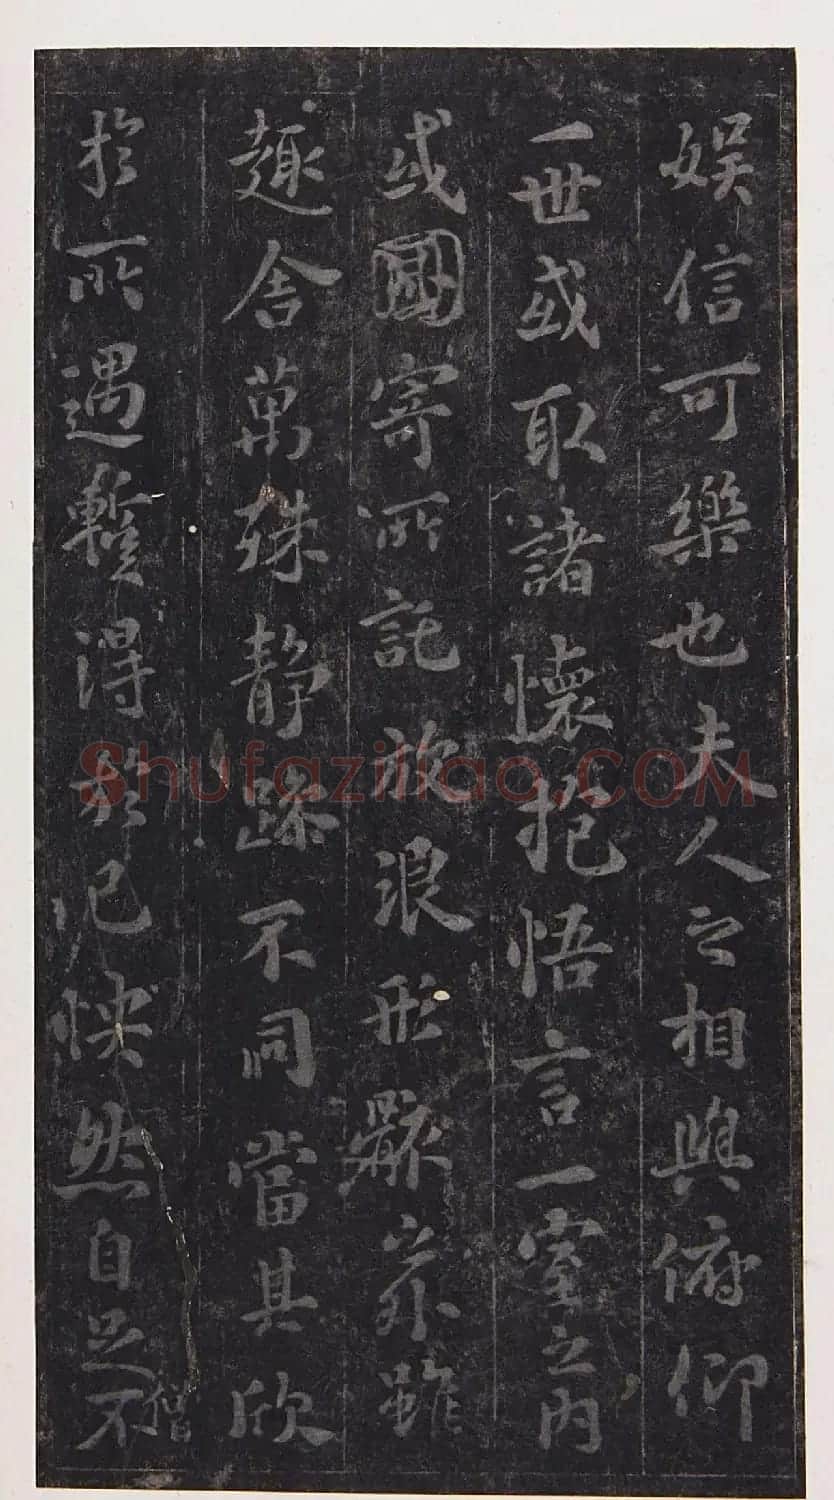 娛信可樂也夫人之相與俯仰
一世或取諸懷抱悟言一室之內
或因寄所託放浪形骸之外雖
趣舍萬殊静躁不同當其欣
於所遇暫得於己怏然自足不
僧
Shufaziliao.COM